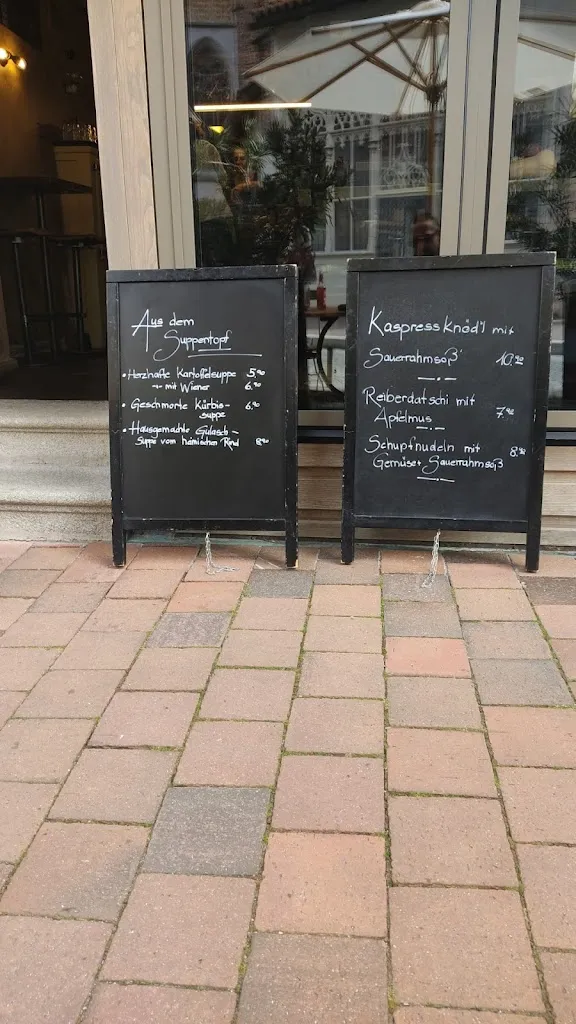 Aus dem
Suppentopf
• Herzhafte Kartoffelsuppe 5.90
~ mit Wiener 6.90
• Geschmorte Kürbis-
suppe 6.90
• Hausgemachte Gulasch-
suppe vom heimischen Rind 8.90
Kaspressknöd'l mit
Sauerrahmsoß' 10.90
Reiberdatschi mit
Apfelmus 7.90
Schupfnudeln mit 8.90
Gemüse + Sauerrahmsoß